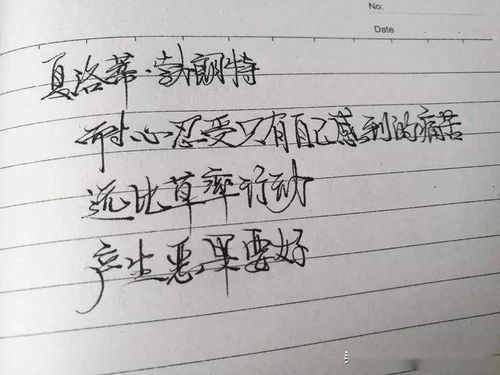 No:
Date
夏洛蒂·勃朗特
耐心忍受只有自己感到的痛苦
远比草率行动
产生恶果要好